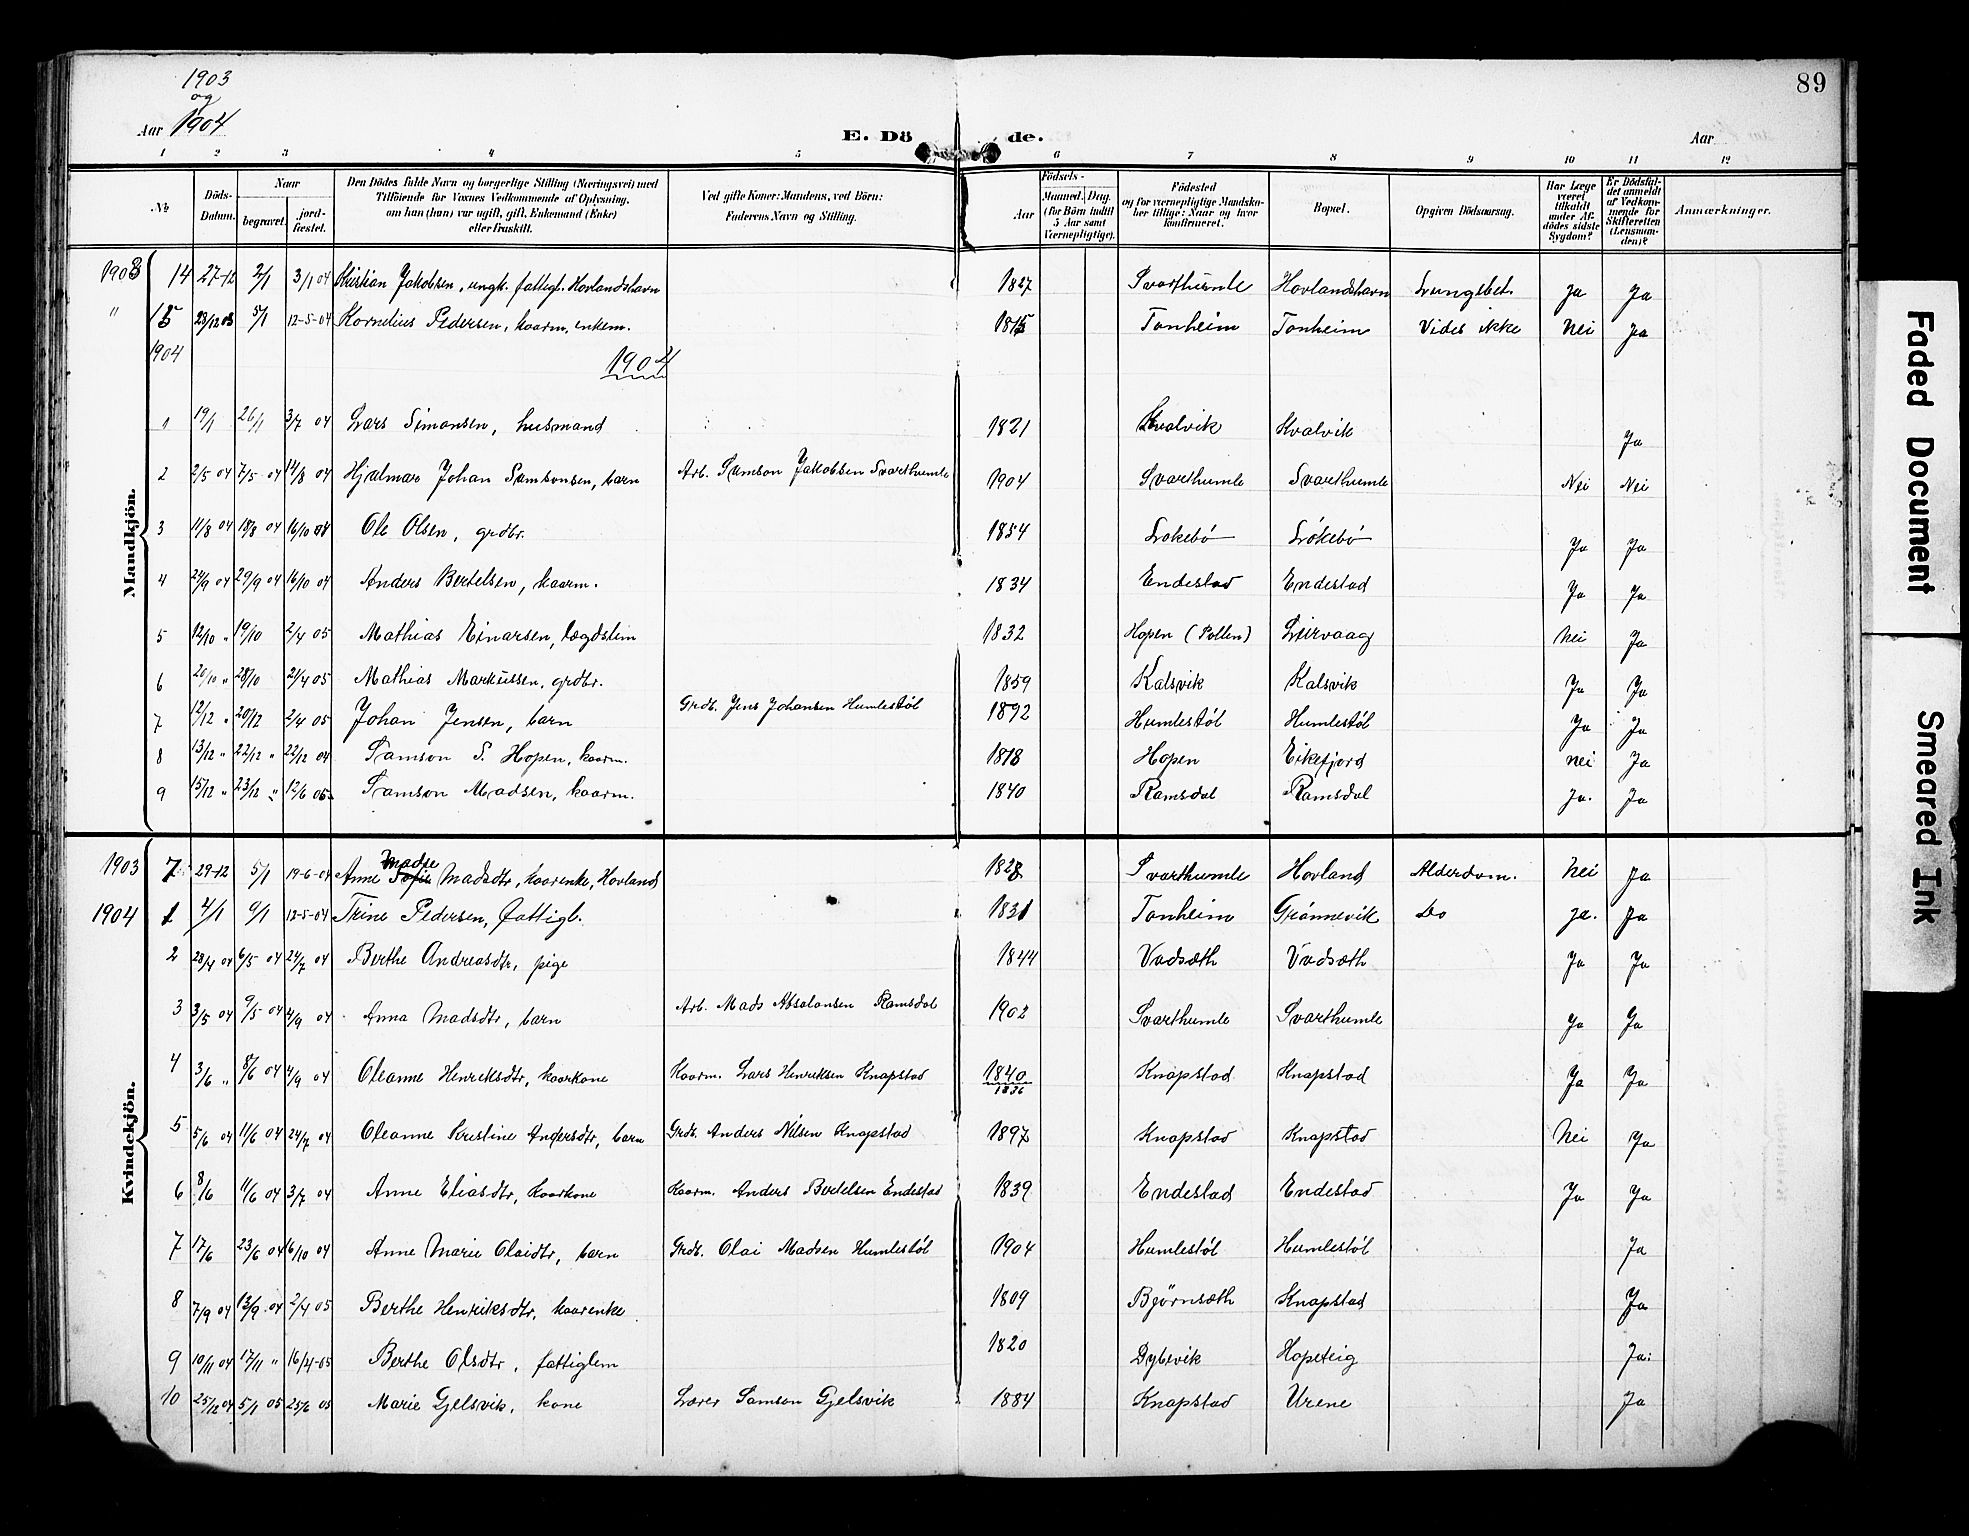 1903
og
Aar 1904
E. Döde.
Aar
89
1 2 3 4 5 6 7 8 9 10 11 12
No
Döds-Datum.
Naar
begravet.
jord-fæstet.
Den Dödes fulde Navn og borgerlige Stilling (Næringsvei) med Tilföiende for Voxnes Vedkommende af Oplysning, om han (hun) var ugift, gift, Enkemand (Enke) eller fraskilt.
Ved gifte Koner: Mandens, ved Börn: Faderens Navn og Stilling.
Födsels-
Aar
Maaned. Dag.
(for Börn indtil 5 Aar samt Værnepligtige).
Födested og for værnepligtige Mandskaber tillige: Naar og hvor konfirmeret.
Bopæl.
Opgiven Dödsaarsag.
Har Læge været tilkaldt under Afdödes sidste Sygdom?
Er Dödsfaldet anmeldt af Vedkommende for Skifteretten (Lensmanden)?
Anmærkninger.
Mandkjön.
1903 14 27-12 2/1 3/1 04 Kristian Jakobsen, ungk. fattigl. Hovlandshavn 1827 Svarthumle Hovlandshavn Lungebet. ja Ja
" 15 23/12 03 5/1 12-5-04 Kornelius Pedersen, kaarm, enkem. 1815 Tonheim Tonheim Vides ikke Nei Ja
1904
1904
1 19/1 26/1 3/7 04 Lars Simonsen, husmand 1821 Kvalvik Kvalvik Ja
2 2/5 04 7/5 04 14/8 04 Hjalmar Johan Samsonsen, barn Arb. Samson Jakobsen Svarthumle 1904 Svarthumle Svarthumle Nei Nei
3 11/8 04 18/8 04 16/10 04 Ole Olsen, grdbr. 1854 Løkebø Løkebø Ja Ja
4 24/9 04 29/9 04 16/10 04 Anders Bertelsen, kaarm. 1834 Endestad Endestad Ja Ja
5 12/10 " 19/10 2/4 05 Mathias Einarsen, lægdslim 1832 Hopen (Pollen) Lervaag Nei Ja
6 20/10 " 28/10 2/4 05 Mathias Markussen, grdbr. 1859 Kalsvik Kalsvik Ja Ja
7 12/12 " 20/12 2/4 05 Johan Jensen, barn Grdb. Jens Johansen Humlestøl 1892 Humlestøl Humlestøl Ja Ja
8 13/12 " 22/12 " 22/12 04 Samson S. Hopen, kaarm. 1818 Hopen Eikefjord nei Ja
9 15/12 " 23/12 " 12/6 05 Samson Madsen, kaarm. 1840 Ramsdal Ramsdal Ja. Ja
Kvindekjön.
1903 7 29-12 5/1 19-6-04 Anne Madse Sofie Madsdtr, kaarenke, Hovland 1828 Svarthumle Hovland Alderdom. Nei Ja
1904 1 4/1 9/1 12-5-04 Trine Pedersen, fattigl. 1831 Tonheim Grønnevik Do ja. Ja
2 28/4 04 6/5 04 24/7 04 Berthe Andreasdtr, pige 1844 Vadsæth Vadsæth Ja Ja
3 3/5 04 9/5 04 4/9 04 Anna Madsdtr, barn Arb. Mads Absalonsen Ramsdal 1902 Svarthumle Svarthumle Ja Ja
4 3/6 " 8/6 04 4/9 04 Oleanne Henriksdtr, kaarkone Kaarm. Lars Henriksen Knapstad 1840 1836 Knapstad Knapstad Ja Ja
5 5/6 04 11/6 04 24/7 04 Oleanne Kristine Andersdtr, barn Grdb. Anders Nilsen Knapstad 1897 Knapstad Knapstad Nei Ja
6 8/6 11/6 04 3/7 04 Anne Eliasdtr, kaarkone Kaarm. Anders Bertelsen Endestad 1839 Endestad Endestad Ja Ja
7 17/6 23/6 04 16/10 04 Anne Marie Olaidtr, barn Grdb. Olai Madsen Humlestøl 1904 Humlestøl Humlestøl Ja
8 7/9 04 13/9 04 2/4 05 Berthe Henriksdtr, kaarenke 1809 Bjørnsæth Knapstad Ja
9 10/11 04 17/11 " 16/4-05 Berthe Olsdtr, fattiglem 1820 Dybevik Hopeteig Ja.
10 25/12 04 5/1 05 25/6 05 Marie Gjelsvik, kone Lærer Samson Gjelsvik 1884 Knapstad Urene Ja
Faded Document
Smeared Ink